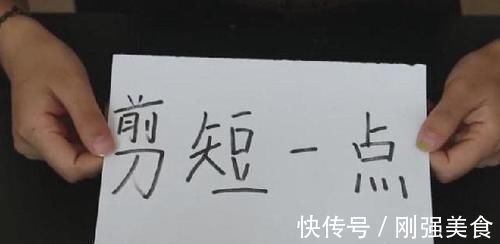 剪短一点
快传号/刚强美食